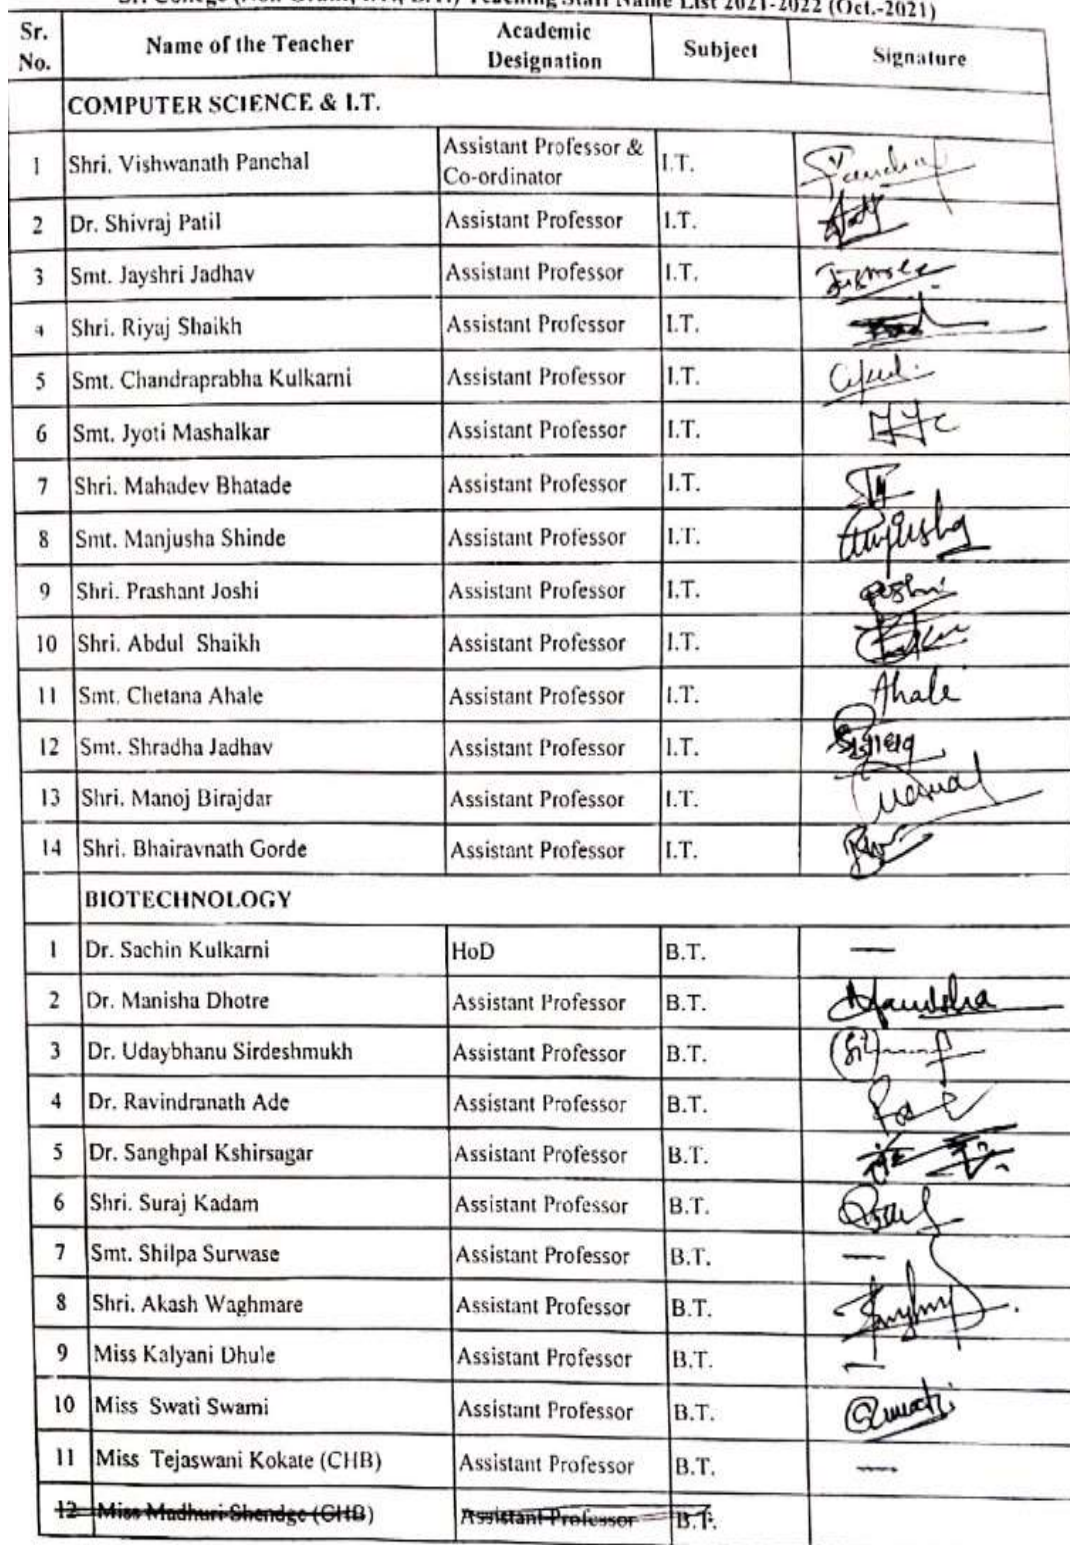 Sr. College (Non-Grant, I.T., B.T.) Teaching Staff Name List 2021-2022 (Oct.-2021)
Sr. No. Name of the Teacher Academic Designation Subject Signature
COMPUTER SCIENCE & I.T.
1 Shri. Vishwanath Panchal Assistant Professor & Co-ordinator I.T.
2 Dr. Shivraj Patil Assistant Professor I.T.
3 Smt. Jayshri Jadhav Assistant Professor I.T.
4 Shri. Riyaj Shaikh Assistant Professor I.T.
5 Smt. Chandraprabha Kulkarni Assistant Professor I.T.
6 Smt. Jyoti Mashalkar Assistant Professor I.T.
7 Shri. Mahadev Bhatade Assistant Professor I.T.
8 Smt. Manjusha Shinde Assistant Professor I.T.
9 Shri. Prashant Joshi Assistant Professor I.T.
10 Shri. Abdul Shaikh Assistant Professor I.T.
11 Smt. Chetana Ahale Assistant Professor I.T. Ahale
12 Smt. Shradha Jadhav Assistant Professor I.T.
13 Shri. Manoj Birajdar Assistant Professor I.T.
14 Shri. Bhairavnath Gorde Assistant Professor I.T.
BIOTECHNOLOGY
1 Dr. Sachin Kulkarni HoD B.T. —
2 Dr. Manisha Dhotre Assistant Professor B.T.
3 Dr. Udaybhanu Sirdeshmukh Assistant Professor B.T.
4 Dr. Ravindranath Ade Assistant Professor B.T.
5 Dr. Sanghpal Kshirsagar Assistant Professor B.T.
6 Shri. Suraj Kadam Assistant Professor B.T.
7 Smt. Shilpa Surwase Assistant Professor B.T. —
8 Shri. Akash Waghmare Assistant Professor B.T.
9 Miss Kalyani Dhule Assistant Professor B.T. —
10 Miss Swati Swami Assistant Professor B.T.
11 Miss Tejaswani Kokate (CHB) Assistant Professor B.T. —
12 Miss Madhuri Shendge (CHB) Assistant Professor B.T.